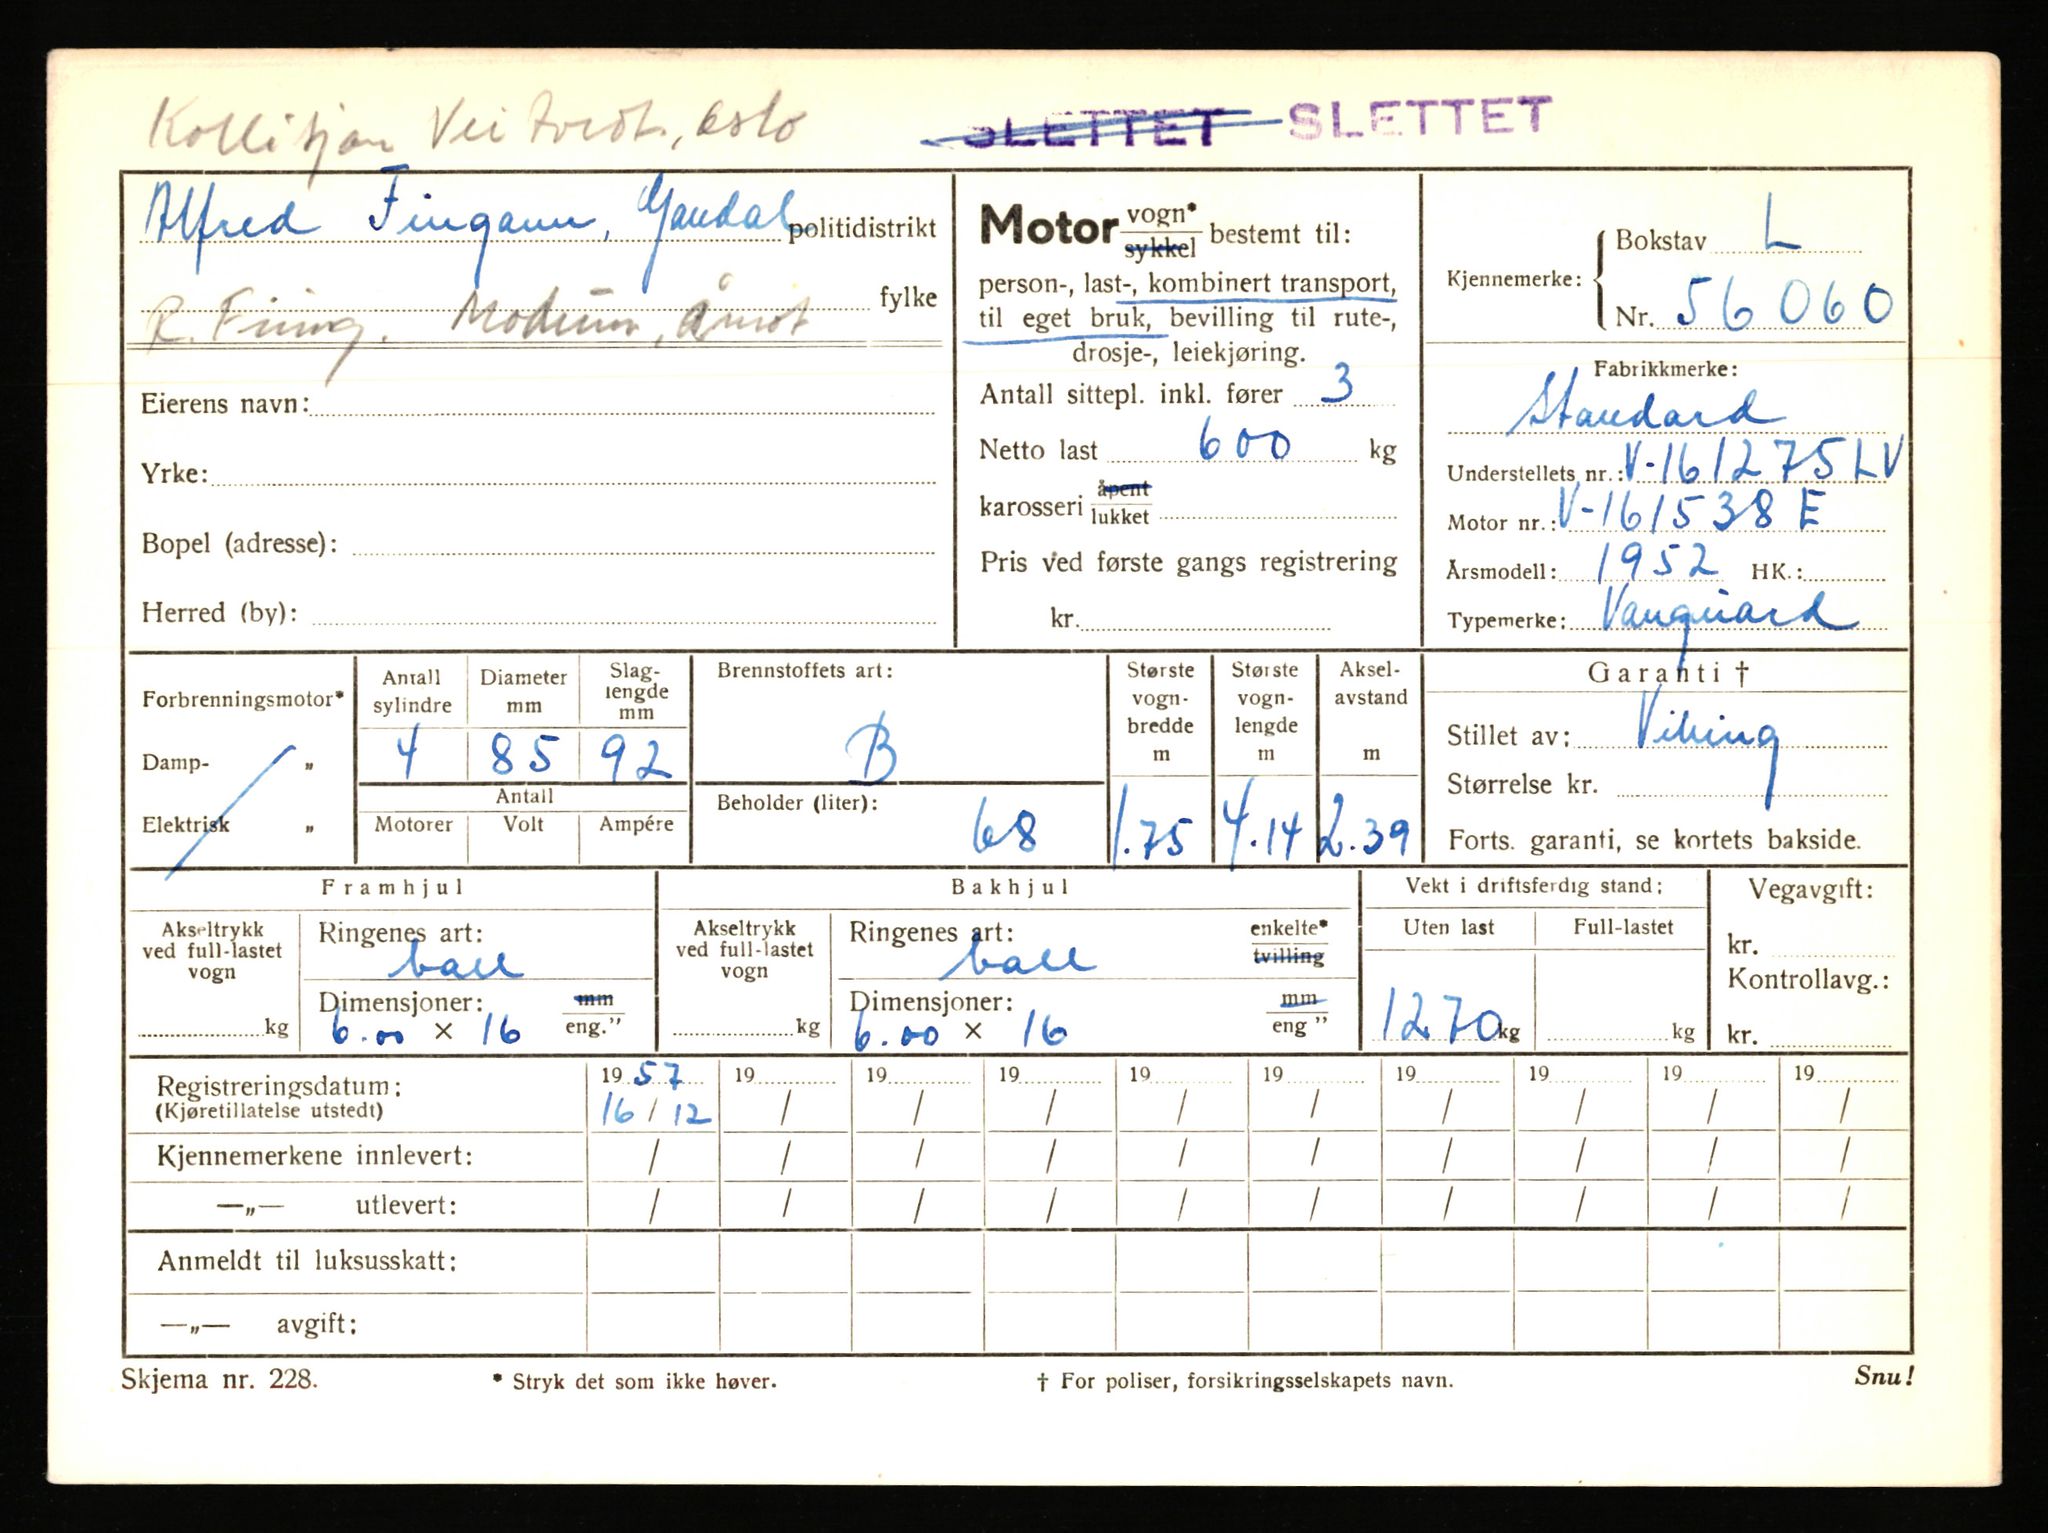 Veitvedt, Oslo SLETTET SLETTET
Alfred Fingann, Gandal politidistrikt
R. Fining. Modum, Åmot fylke
Eierens navn:
Yrke:
Bopel (adresse):
Herred (by):
Motor vogn* sykkel bestemt til:
person-, last-, kombinert transport,
til eget bruk, bevilling til rute-,
drosje-, leiekjøring.
Antall sittepl. inkl. fører 3
Netto last 600 kg
karosseri åpent lukket
Pris ved første gangs registrering
kr.
Kjennemerke: Bokstav L
Nr. 56060
Fabrikkmerke:
Standard
Understellets nr.: V-161275LV
Motor nr.: V-161538 E
Årsmodell: 1952 HK.:
Typemerke: Vanguard
Forbrenningsmotor*
Damp- „
Elektrisk „
Antall sylindre Diameter mm Slaglengde mm
4 85 92
Antall
Motorer Volt Ampére
Brennstoffets art:
B
Beholder (liter):
68
Største vognbredde m Største vognlengde m Akselavstand m
1.75 4.14 2.39
Garanti †
Stillet av: Viking
Størrelse kr.
Forts. garanti, se kortets bakside.
Framhjul
Akseltrykk ved full-lastet vogn
kg
Ringenes art:
ball
Dimensjoner: mm
6.00 × 16 eng."
Bakhjul
Akseltrykk ved full-lastet vogn
kg
Ringenes art: enkelte* tvilling
ball
Dimensjoner: mm
6.00 × 16 eng "
Vekt i driftsferdig stand:
Uten last Full-lastet
1270 kg kg
Vegavgift:
kr.
Kontrollavg.:
kr.
Registreringsdatum: 19 57 19 19 19 19 19 19 19 19 19
(Kjøretillatelse utstedt) 16 / 12 / / / / / / / / /
Kjennemerkene innlevert: / / / / / / / / / /
—„— utlevert: / / / / / / / / / /
Anmeldt til luksusskatt:
—„— avgift:
Skjema nr. 228. * Stryk det som ikke høver. † For poliser, forsikringsselskapets navn. Snu!